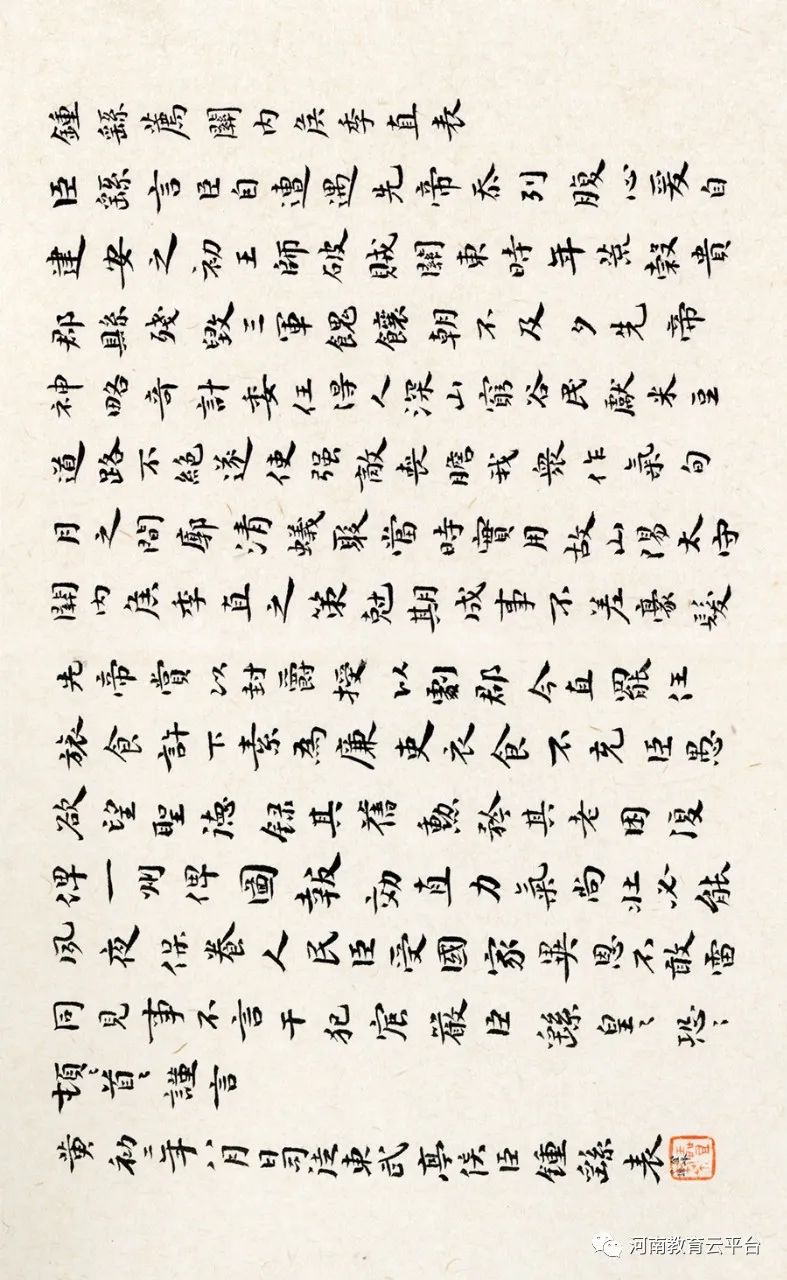 鍾繇薦關内侯季直表
臣繇言臣自遭遇先帝忝列腹心爰自
建安之初王師破賊關東時年荒穀貴
郡縣殘毀三軍餽饟朝不及夕先帝
神略奇計委任得人深山窮谷民獻米豆
道路不絶遂使强敵喪膽我衆作氣旬
月之間廓清蟻聚當時實用故山陽太守
關内侯季直之策尅期成事不差豪髮
先帝賞以封爵授以劇郡今直罷任
旅食許下素為廉吏衣食不充臣愚
欲望聖德錄其舊勳矜其老困復
俾一州俾圖報効直力氣尚壯必能
夙夜保養人民臣受國家異恩不敢雷
同見事不言干犯宸嚴臣繇皇〻恐〻
頓〻首〻謹言
黃初二年八月日司徒東武亭侯臣鍾繇表
河南教育云平台